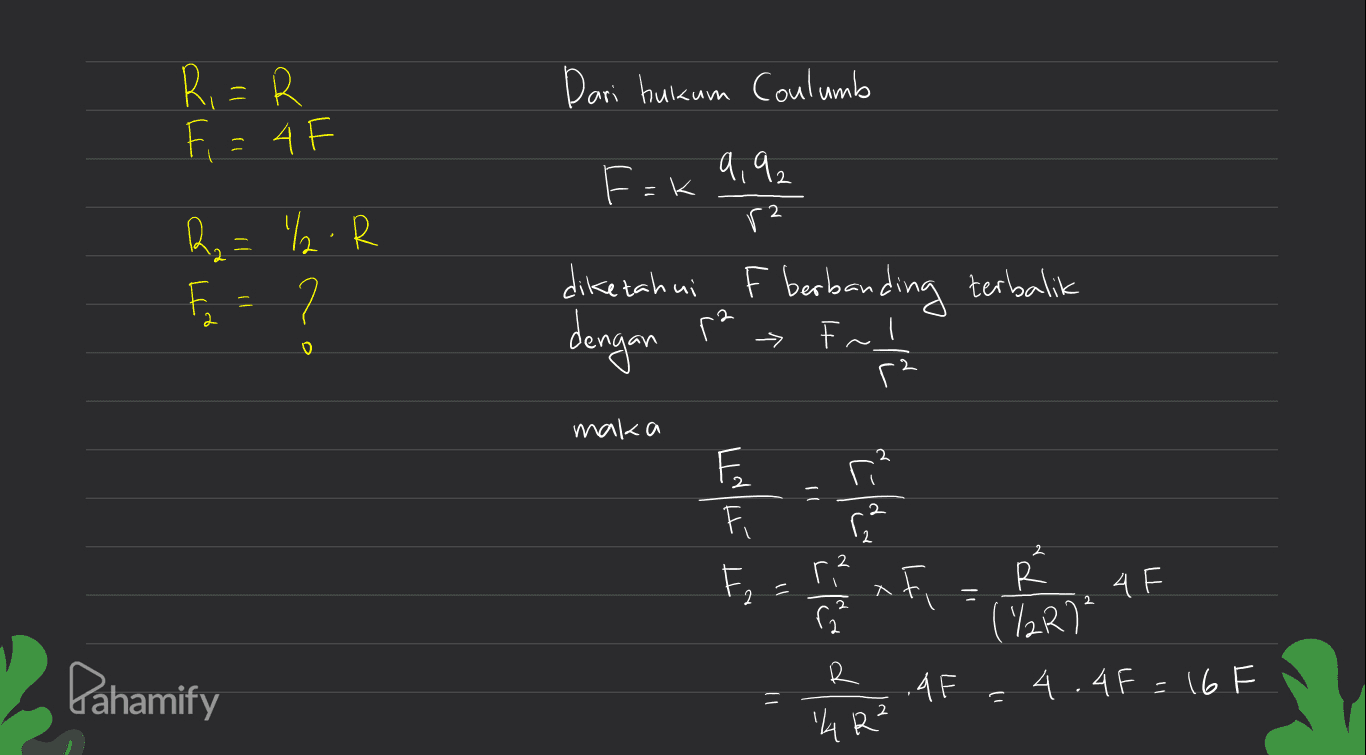 R₁ = R
F₁ = 4F
R₂ = ½ · R
F₂ = ?
Dari hukum Coulumb
F = k q₁q₂ / r²
diketahui F berbanding terbalik
dengan r² → F ~ 1 / r²
maka
F₂ / F₁ = r₁² / r₂²
F₂ = r₁² / r₂² × F₁ = R² / (½R)² 4F
= R / ¼ R² . 4F = 4 . 4F = 16 F
Pahamify